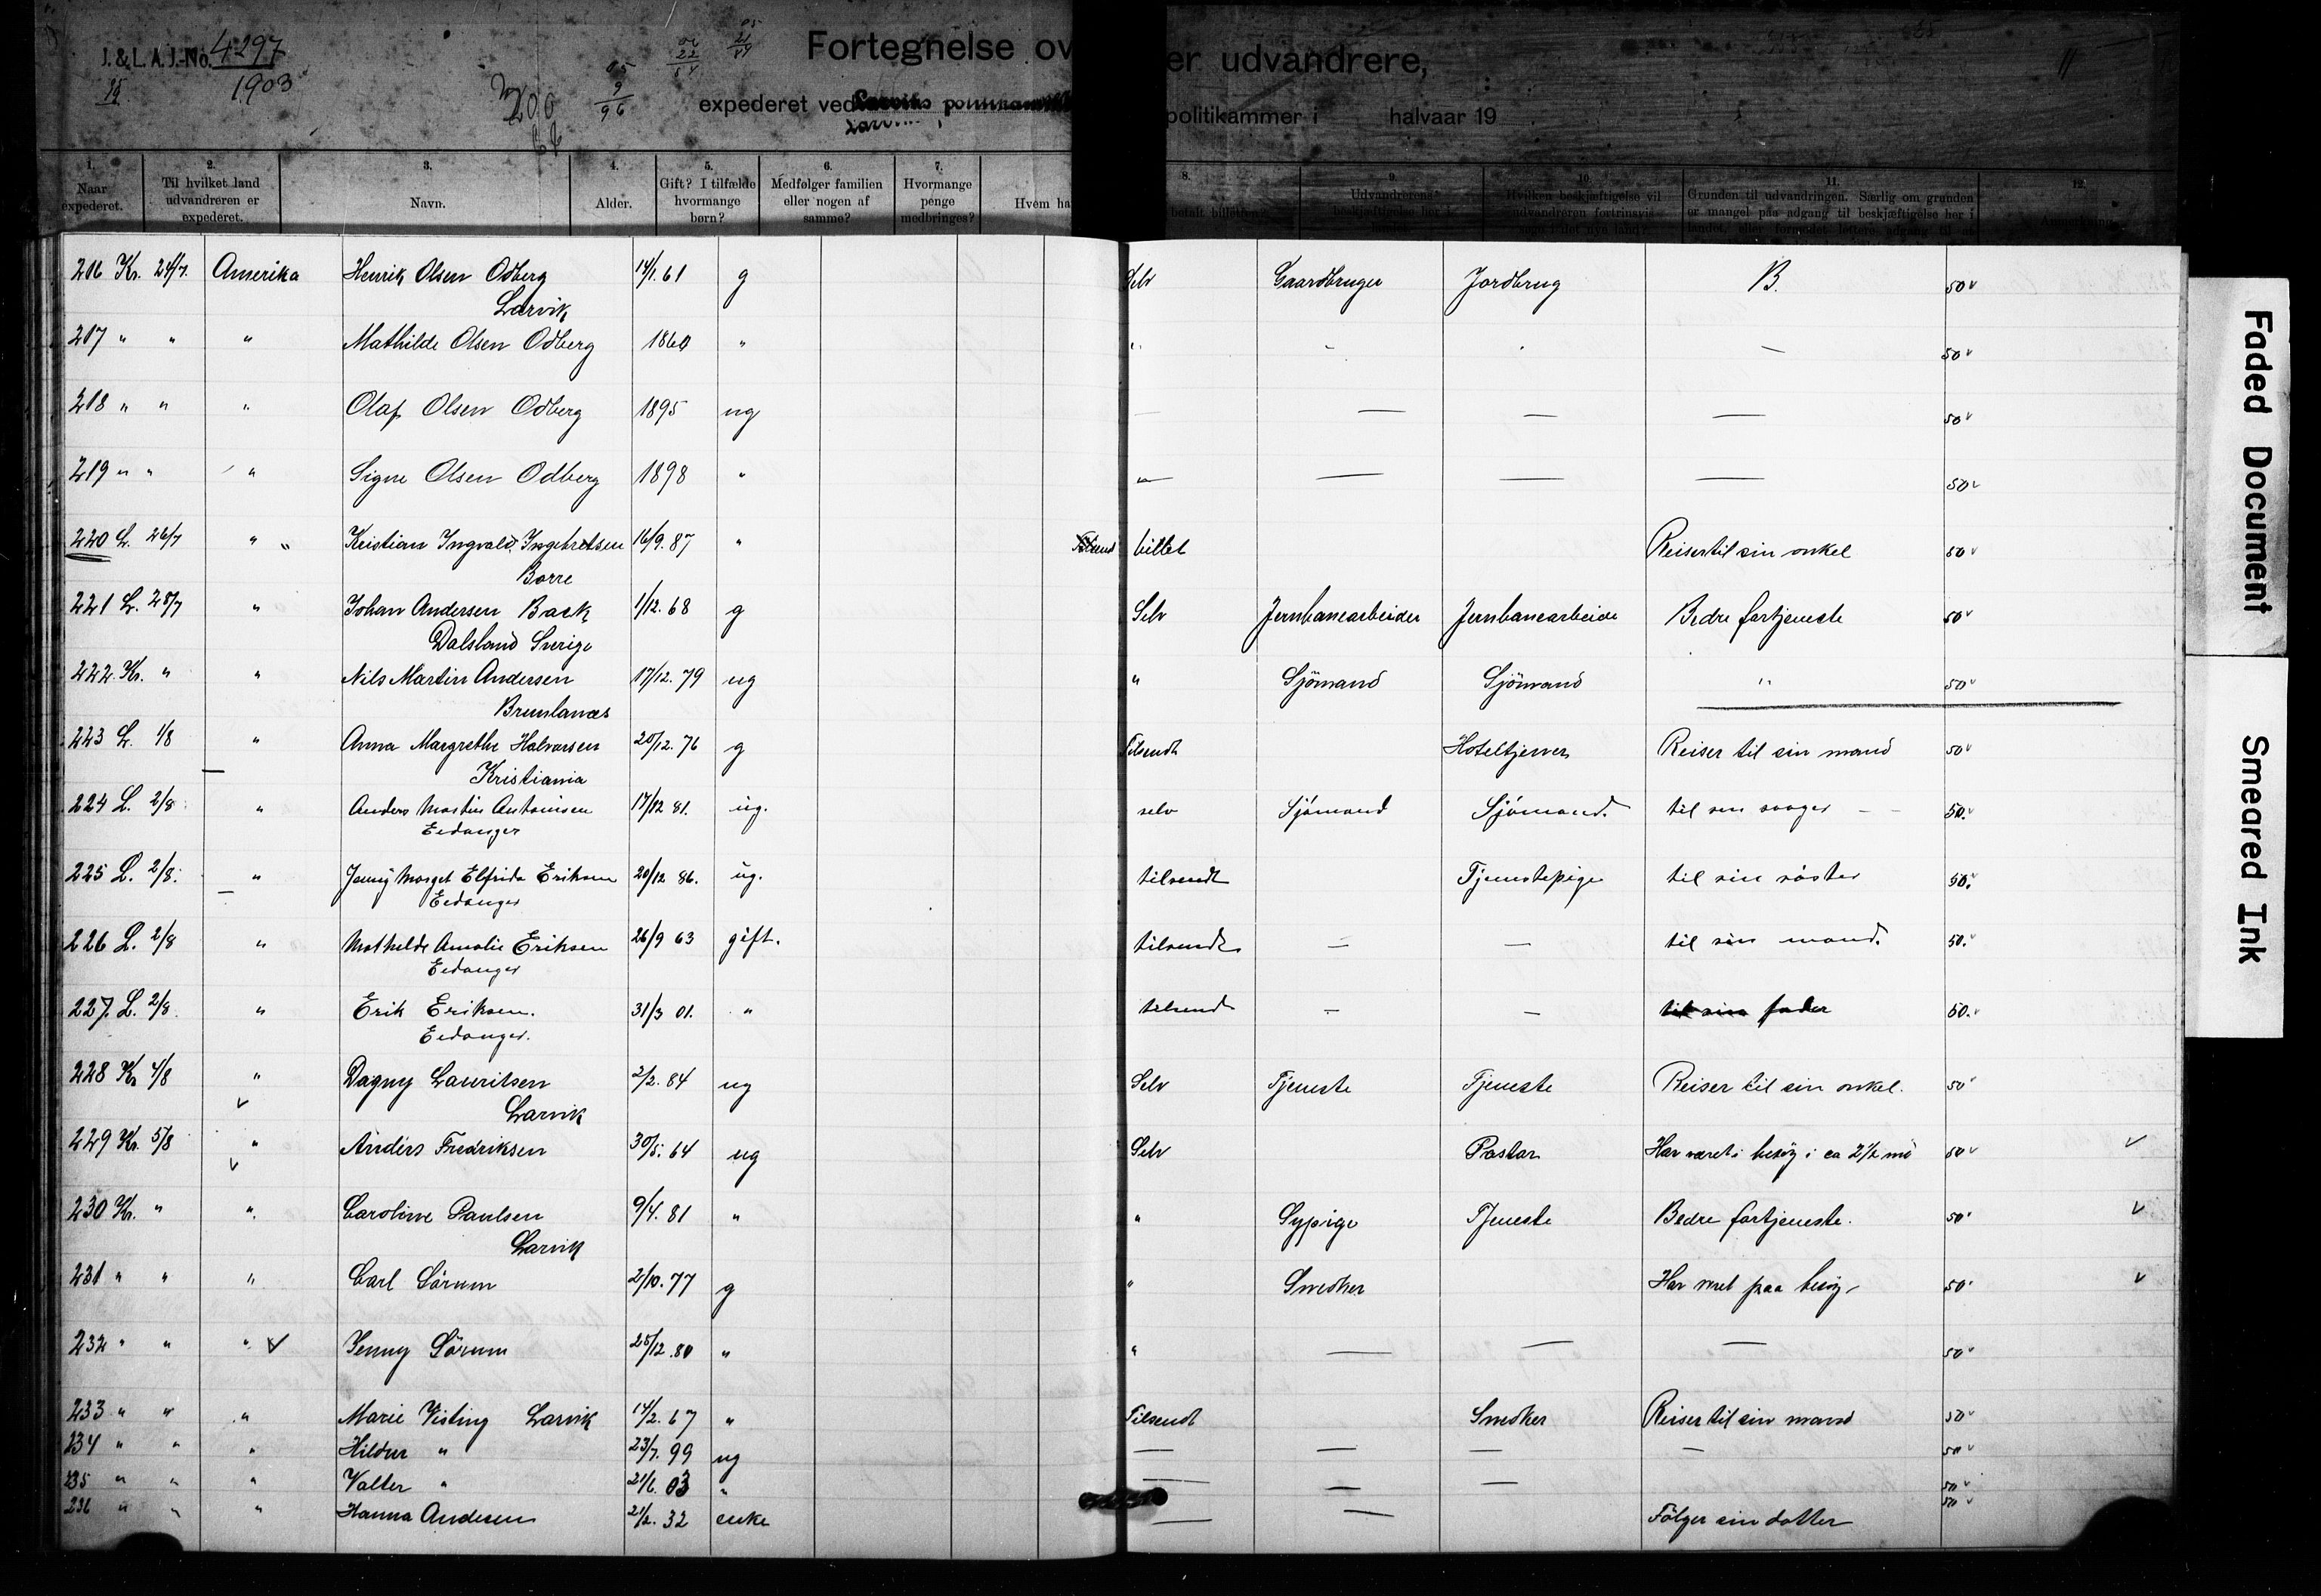 J. & L. A. J.-No. 4297
1903
Fortegnelse over udvandrere,
expederet ved Larviks politikammer
politikammer i halvaar 19
1. Naar expederet.
2. Til hvilket land udvandreren er expederet.
3. Navn.
4. Alder.
5. Gift? I tilfælde hvormange børn?
6. Medfølger familien eller nogen af samme?
7. Hvormange penge medbringes?
8. Hvem ha betalt billetten?
9. Udvandrerens beskjæftigelse her i landet.
10. Hvilken beskjæftigelse vil udvandreren fortrinsvis søge i det nye land?
11. Grunden til udvandringen. Særlig om grunden er mangel paa adgang til beskjæftigelse her i landet, eller formodet lettere adgang til at
12.
216 Kr. 24/7. Amerika Henrik Olsen Odberg 14/1. 61 g Selv Gaardbruger Jordbrug B. 50 v
Larvik
217 " " " Mathilde Olsen Odberg 1860 " " - - — 50 v
218 " " " Olaf Olsen Odberg 1895 ug — — — — 50 v
219 " " " Signe Olsen Odberg 1898 " " — — — 50 v
220 L. 26/7 " " Kristian Ingvald Ingebretsen 16/9. 87 " Tilsend billet Reiser til sin onkel 50 v
Borre
221 L. 28/7 " Johan Andersen Back 1/12. 68 g Selv Jernbanearbeider Jernbanearbeide Bedre fortjeneste 50 v
Dalsland Sverige
222. Kr. " " Nils Martin Andersen 17/12. 79 ug " Sjömand Sjömand " 50 v
Brunlanæs
223 L. 1/8 " Anna Margrethe Halvorsen 20/12. 76 g Tilsendt Hoteltjener Reiser til sin mand 50 v
Kristiania
224 L. 2/8 " Anders Martin Antonisen 17/12 81. ug. selv Sjömand Sjömand. til sin svoger — — 50. v
Eidanger
225 L. 2/8. " Jenny Marget Elfrida Eriksen 20/12 86. ug. tilsendt Tjenestepige til sin söster 50. v
Eidanger
226 L. 2/8 " Mathilde Amalie Eriksen 26/9 63 gift. tilsendt — — til sin mand. 50. v
Eidanger
227. L. 2/8. " Erik Eriksen. 31/3 01. " tilsendt — — til sin fader 50. v
Eidanger.
228 Kr 4/8 " Dagny Lauritsen 2/2. 84 ug Selv Tjeneste Tjeneste Reiser til sin onkel. 50 v
v Larvik
229 Kr. 5/8 " v Anders Fredriksen 30/5. 64 ug Selv Pastor Har været i besög i ca 2 1/2 mö 50 v v
230 Kr. " " Caroline Paulsen 9/4. 81 " " Sypige Tjeneste Bedre fortjeneste. 50 v v
Larvik
231 " " " Carl Sörum 2/10. 77 g " Snedker Har vret paa besög 50 v v
232 " " " v Jenny Sörum 25/12. 80 " " — — — 50 v
233 " " " Marie Visting Larvik 14/2. 67 " Tilsendt Snedker Reiser til sin mand 50 v
234 " " " Hildur " 23/7. 99 ug — — — — 50 v
235 " " " Valter " 21/6. 03 " — — — 50 v
236 " " " Hanna Andesen 21/2. 32 enke — — Fölger sin datter 50 v
Faded Document
Smeared Ink